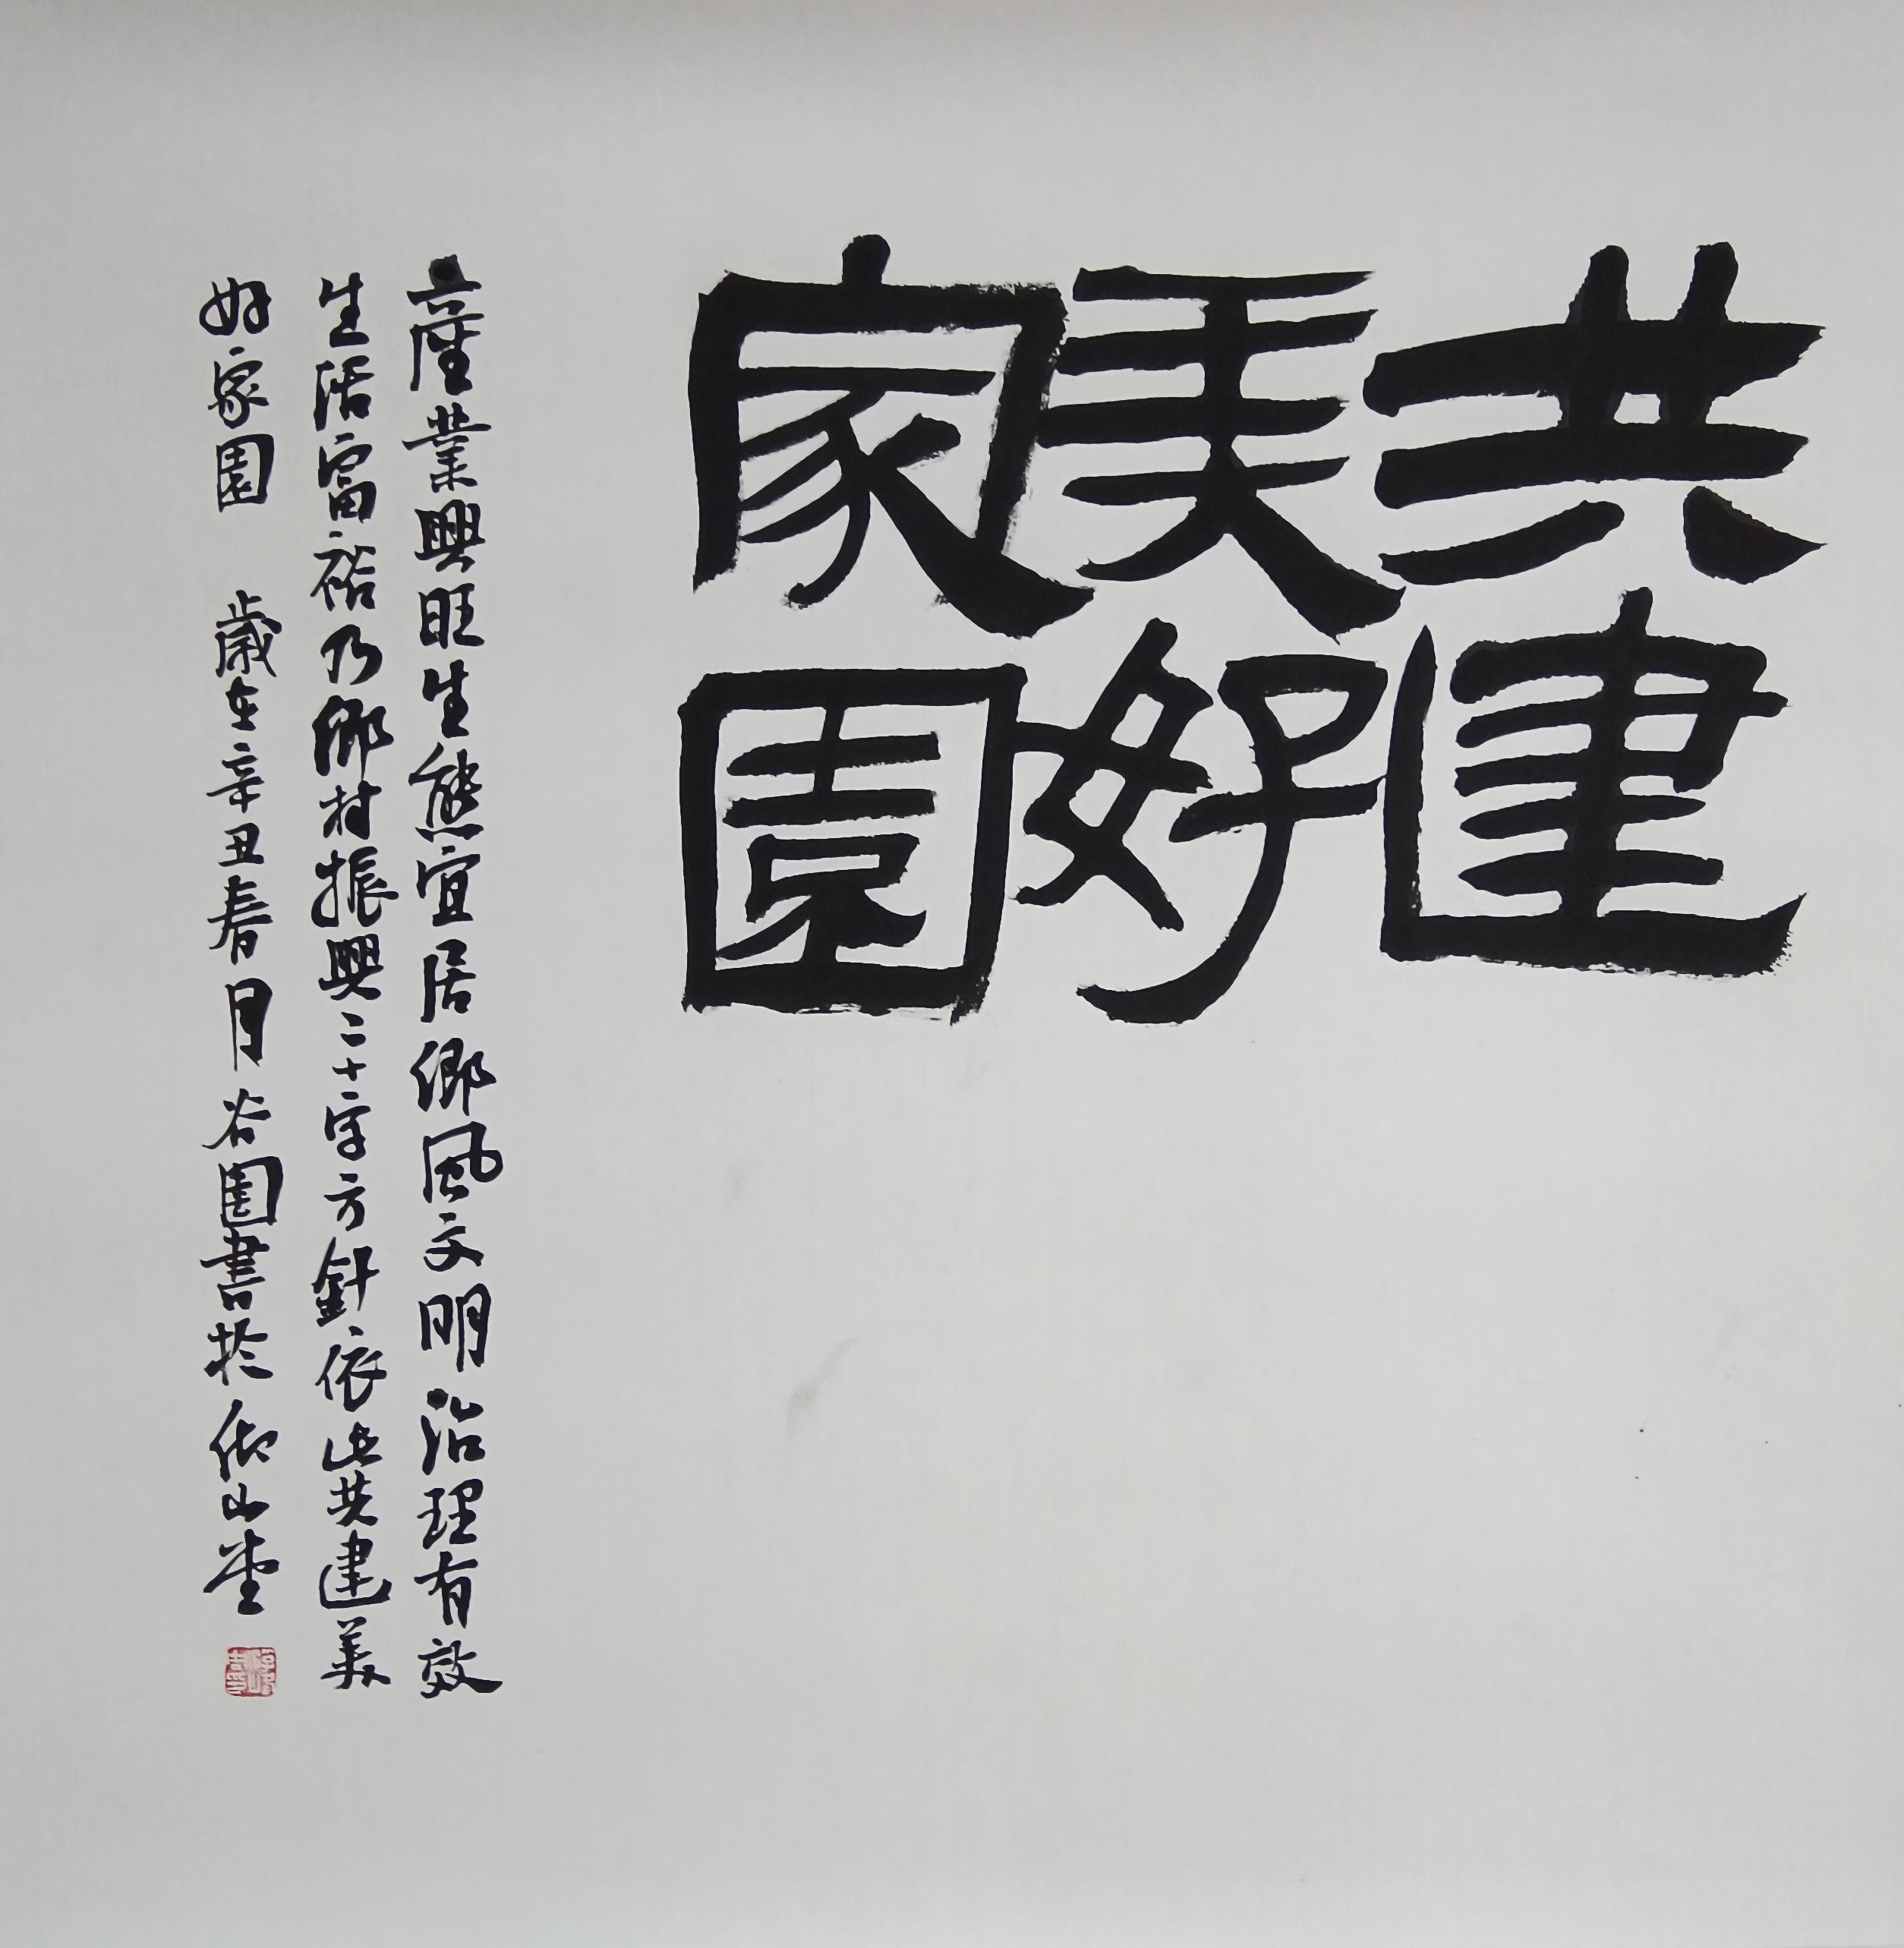 共建
美好
家園
產業興旺生態宜居鄉風文明治理有效
生活富裕乃鄉村振興二十字方針依此共建美
好家園 歲在辛丑春月谷園書於仰山堂